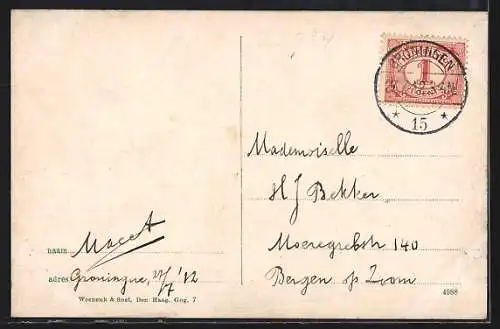 GRONINGEN
1
15
Mademoiselle
H J Bekker
Moeregrebstr 140
Bergen op Zoom
naam
adres Groningue, 27/7 '12
Weenenk & Snel, Den Haag. Gog. 7
4988